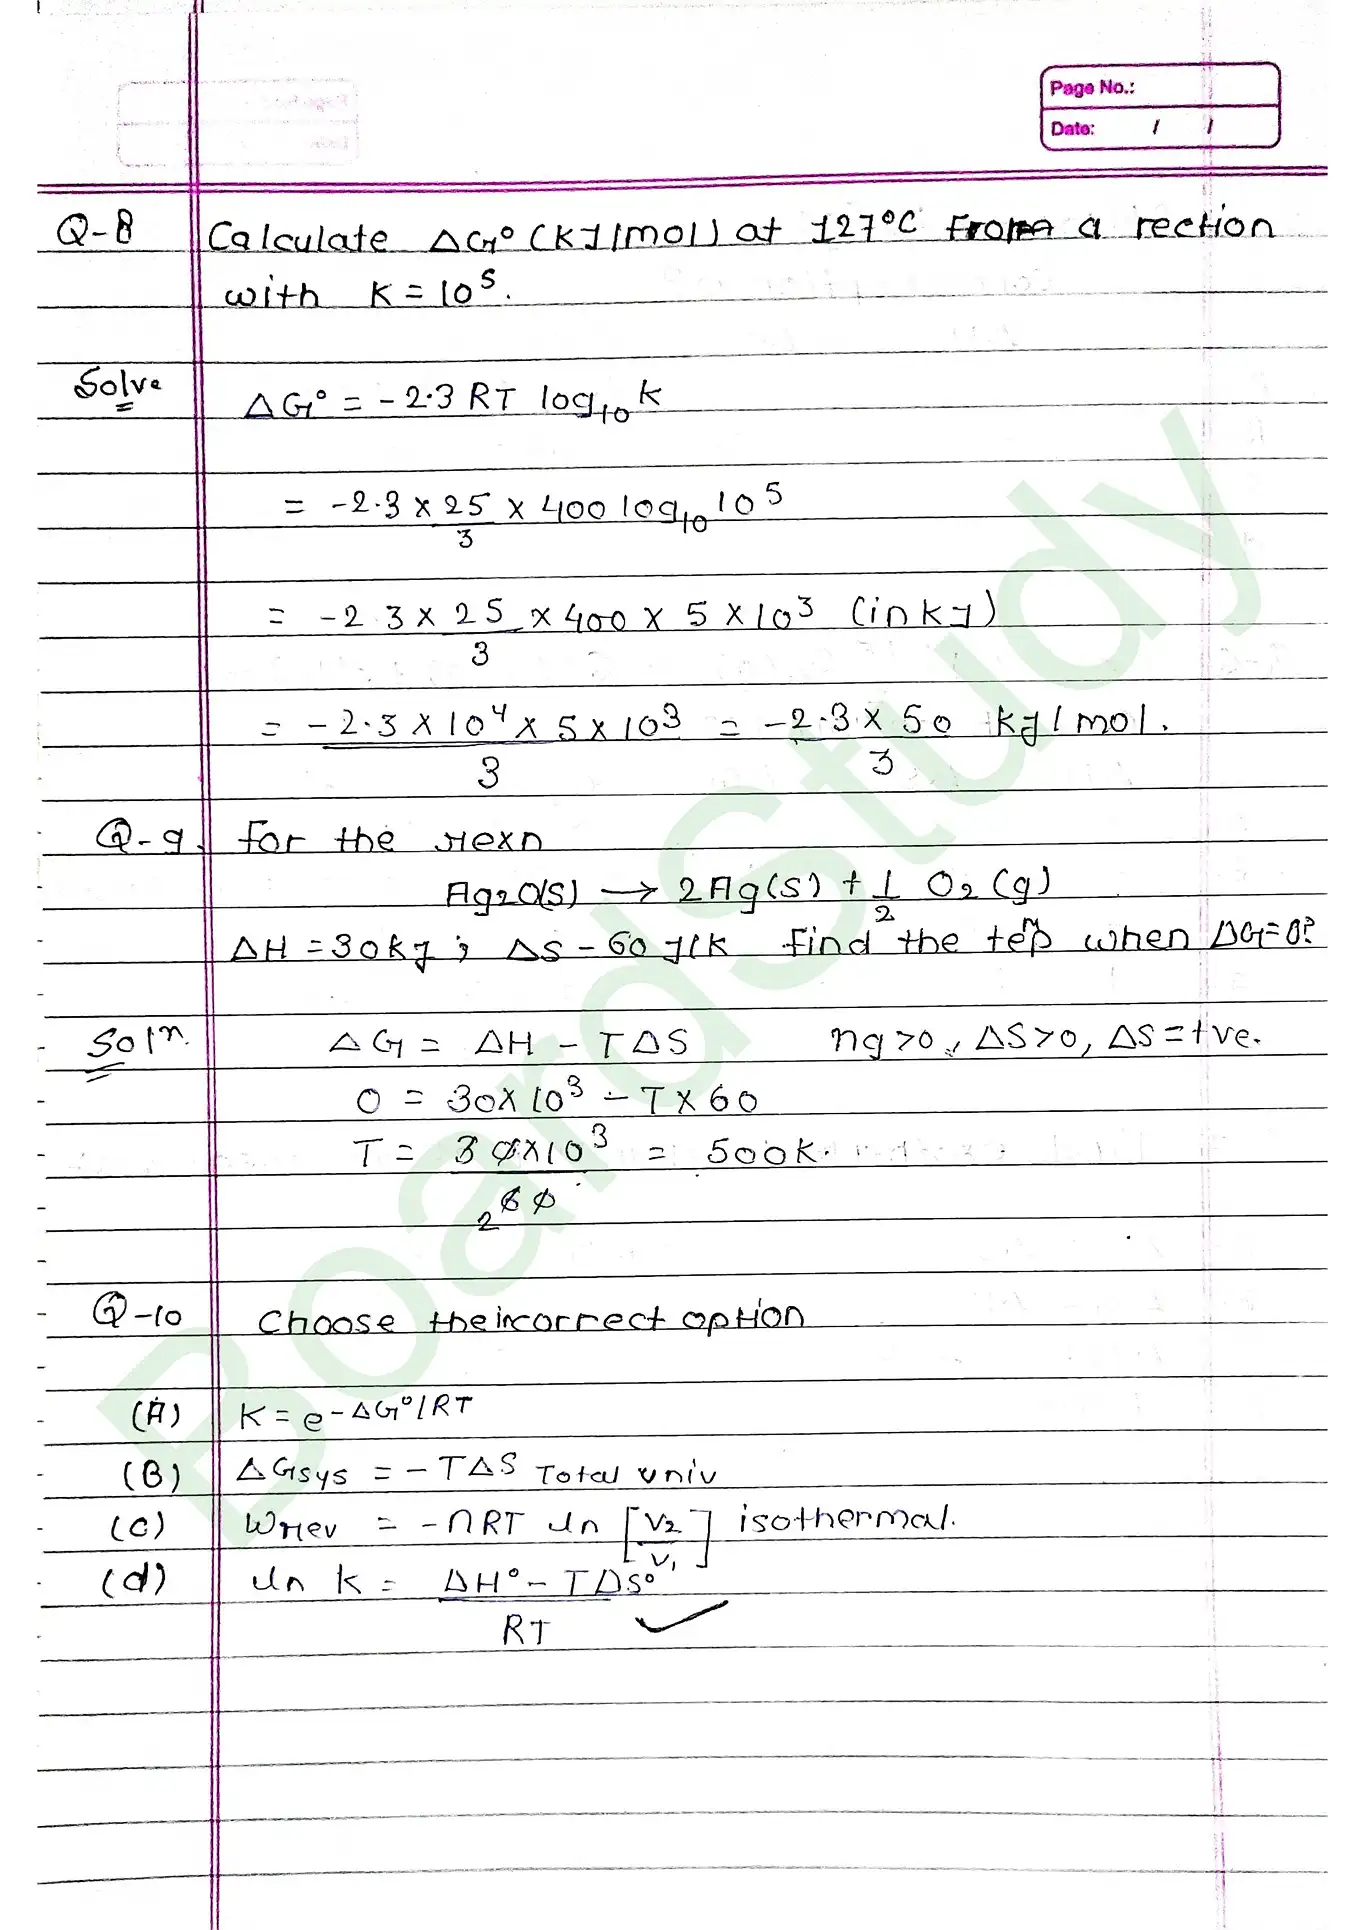 Page No.:
Date: / /
Q-8 Calculate ΔG° (KJ/mol) at 127°C From a rection
with K = 10⁵.
Solve ΔG° = -2.3 RT log₁₀ K
= -2.3 × 25/3 × 400 log₁₀ 10⁵
= -2.3 × 25/3 × 400 × 5 × 10³ (in kJ)
= -2.3 × 10⁴ × 5 × 10³/3 = -2.3 × 50/3 kJ/mol.
Q-9. For the rexn
Ag₂O(s) → 2Ag(s) + 1/2 O₂(g)
ΔH = 30kJ ; ΔS - 60 J/K Find the temp when ΔG=0?
Solⁿ. ΔG = ΔH - TΔS ng>0, ΔS>0, ΔS=+ve.
0 = 30×10³ - T×60
T = 30×10³/60 = 500K.
2
Q-10 Choose the incorrect option
(A) K = e^-ΔG°/RT
(B) ΔGsys = -TΔS Total univ
(C) Wrev = -nRT ln [V₂/V₁] isothermal.
(d) ln K = ΔH° - TΔS°/RT ✓
BoardStudy